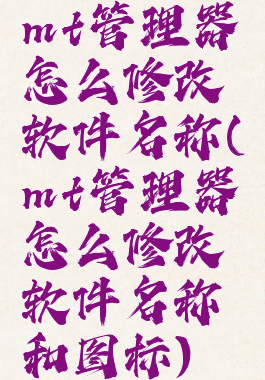 mt管理器
怎么修改
软件名称(
mt管理器
怎么修改
软件名称
和图标)